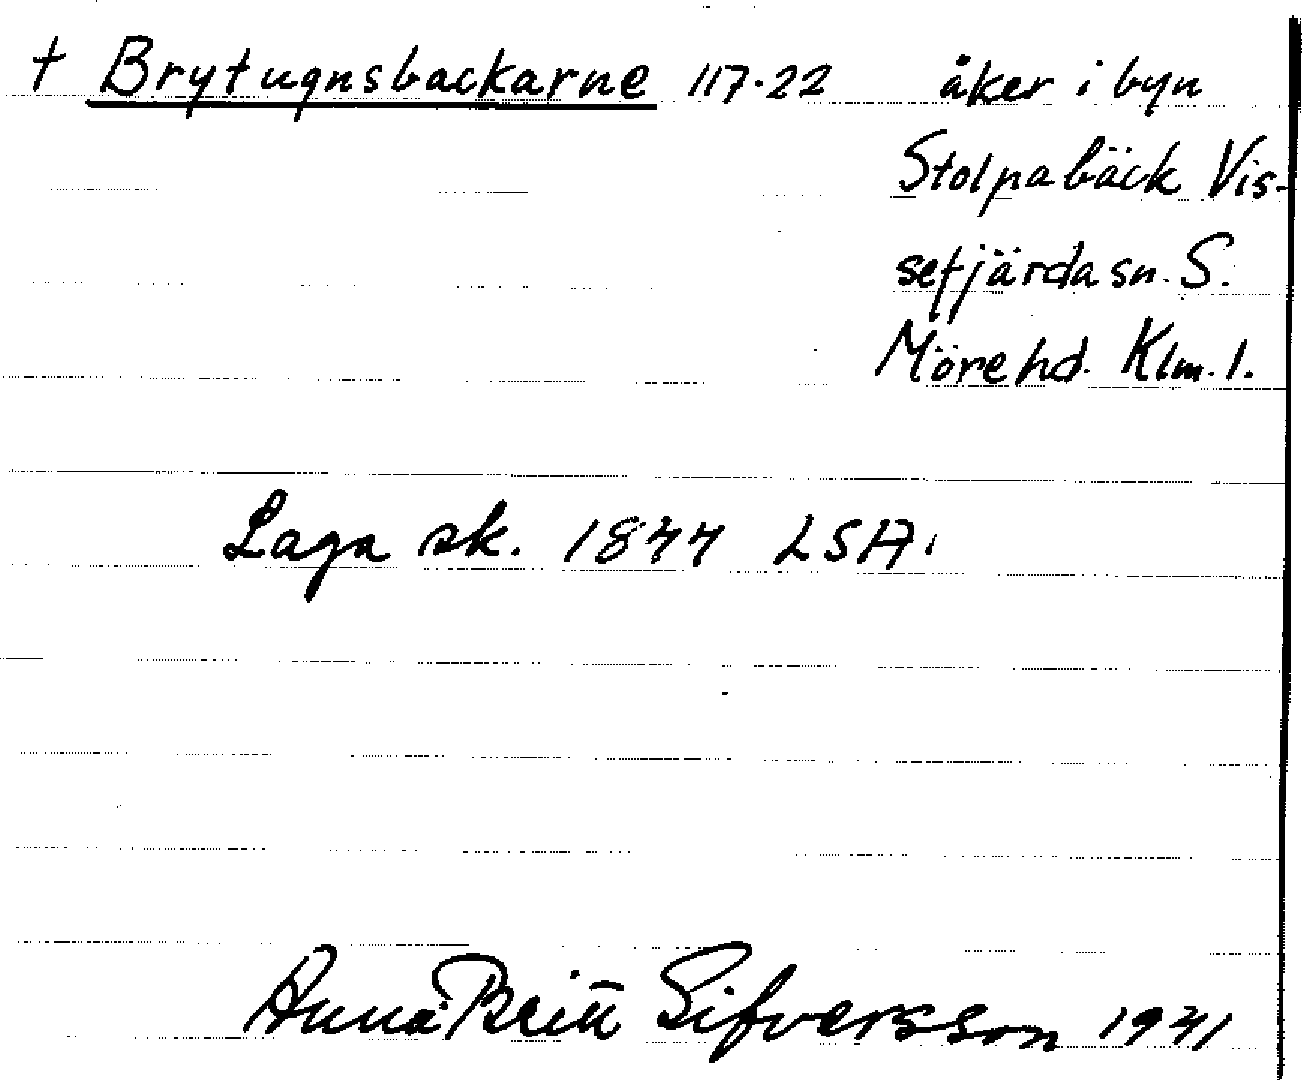 † Brytugnsbackarne 117.22 åker i byn
Stolpabäck Vis-
sefjärda sn. S.
Möre hd. Klm. l.
Laga sk. 1844 LSA.
Anna-Britt Sifversson 1941